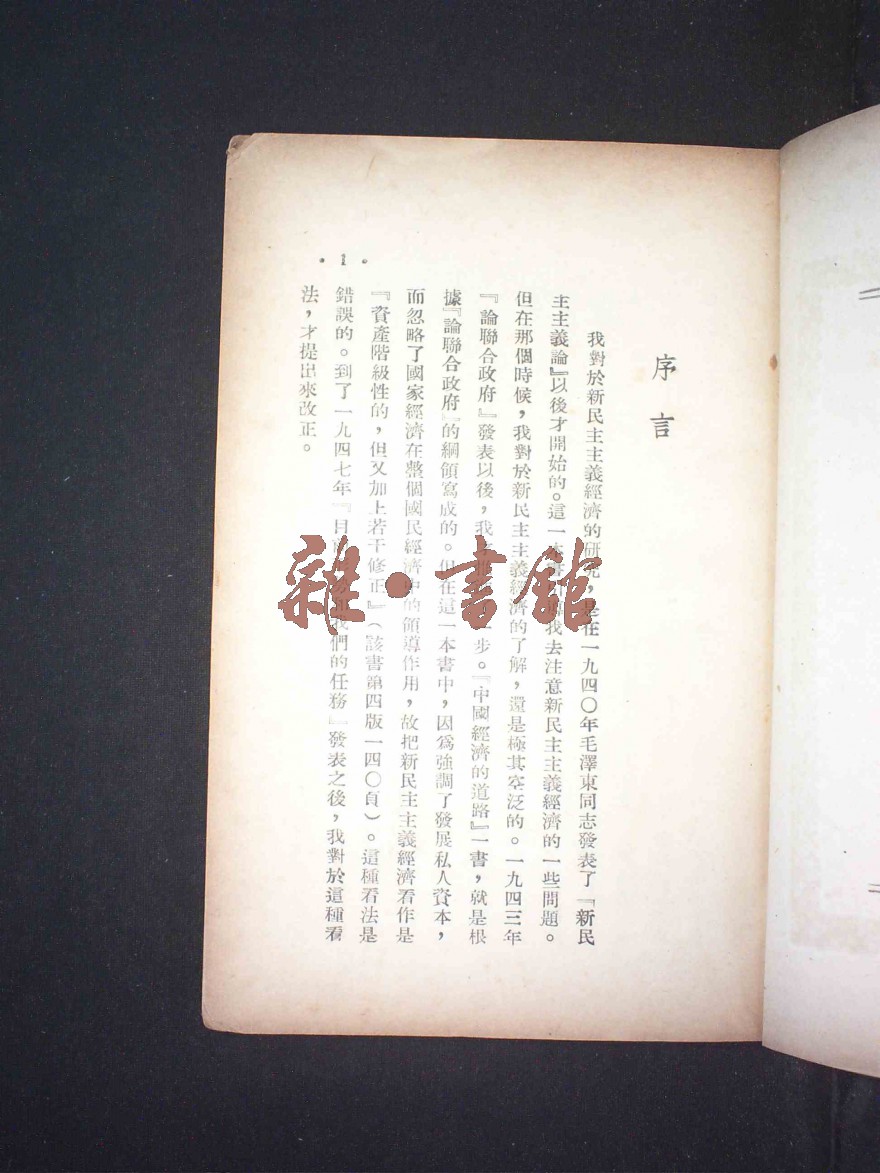 序言
我對於新民主主義經濟的研究，是在一九四〇年毛澤東同志發表了『新民
主主義論』以後才開始的。這一本 我去注意新民主主義經濟的一些問題。
但在那個時候，我對於新民主主義經濟的了解，還是極其空泛的。一九四三年
『論聯合政府』發表以後，我 一步。『中國經濟的道路』一書，就是根
據『論聯合政府』的綱領寫成的。但在這一本書中，因爲強調了發展私人資本，
而忽略了國家經濟在整個國民經濟中的領導作用，故把新民主主義經濟看作是
『資產階級性的，但又加上若干修正』（該書第四版一四〇頁）。這種看法是
錯誤的。到了一九四七年『目 我們的任務』發表之後，我對於這種看
法，才提出來改正。
• 1 •
雜·書館